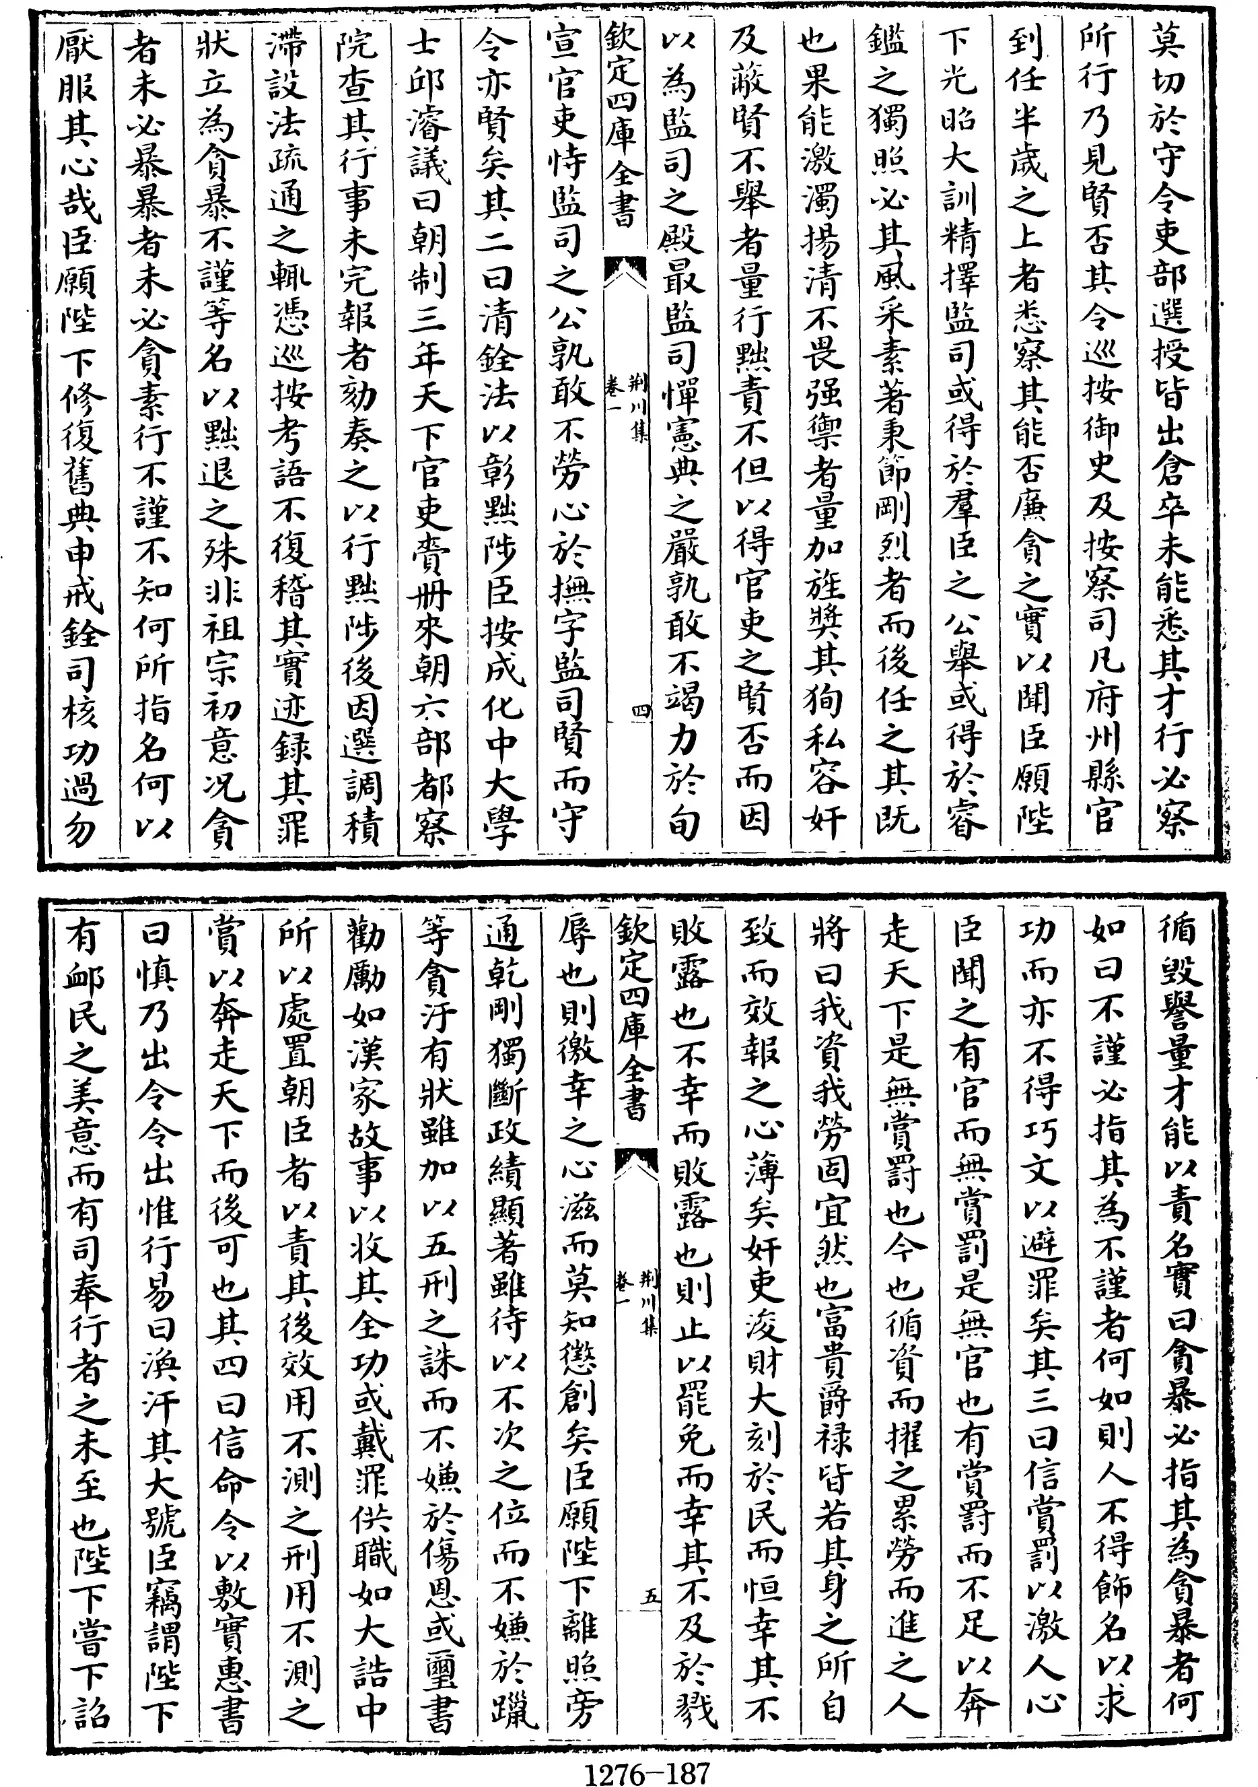 莫切於守令吏部選授皆出倉卒未能悉其才行必察
所行乃見賢否其令巡按御史及按察司凡府州縣官
到任半歲之上者悉察其能否廉貪之實以聞臣願陛
下光昭大訓精擇監司或得於羣臣之公舉或得於睿
鑑之獨照必其風采素著秉節剛烈者而後任之其既
也果能激濁揚清不畏强禦者量加旌奬其狥私容奸
及蔽賢不舉者量行黜責不但以得官吏之賢否而因
以為監司之殿最監司憚憲典之嚴孰敢不竭力於旬
欽定四庫全書
荆川集
卷一
四
宣官吏恃監司之公孰敢不勞心於撫字監司賢而守
令亦賢矣其二曰清銓法以彰黜陟臣按成化中大學
士邱濬議曰朝制三年天下官吏賫冊來朝六部都察
院查其行事未完報者劾奏之以行黜陟後因選調積
滯設法疏通之輒憑巡按考語不復稽其實迹録其罪
狀立為貪暴不謹等名以黜退之殊非祖宗初意况貪
者未必暴暴者未必貪素行不謹不知何所指名何以
厭服其心哉臣願陛下修復舊典申戒銓司核功過勿
循毀譽量才能以責名實曰貪暴必指其為貪暴者何
如曰不謹必指其為不謹者何如則人不得飾名以求
功而亦不得巧文以避罪矣其三曰信賞罰以激人心
臣聞之有官而無賞罰是無官也有賞罰而不足以奔
走天下是無賞罰也今也循資而擢之累勞而進之人
將曰我資我勞固宜然也富貴爵禄皆若其身之所自
致而效報之心薄矣奸吏浚財大刻於民而恒幸其不
敗露也不幸而敗露也則止以罷免而幸其不及於戮
欽定四庫全書
荆川集
卷一
五
辱也則徼幸之心滋而莫知懲創矣臣願陛下離照旁
通乾剛獨斷政績顯著雖待以不次之位而不嫌於躐
等貪汙有狀雖加以五刑之誅而不嫌於傷恩或璽書
勸勵如漢家故事以收其全功或戴罪供職如大誥中
所以處置朝臣者以責其後效用不測之刑用不測之
賞以奔走天下而後可也其四曰信命令以敷實惠書
曰慎乃出令令出惟行易曰渙汗其大號臣竊謂陛下
有卹民之美意而有司奉行者之未至也陛下嘗下詔
1276-187